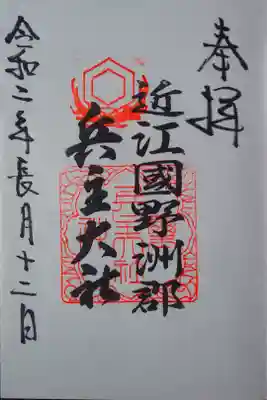 奉拝
近江國野洲郡
兵主大社
令和二年長月十二日